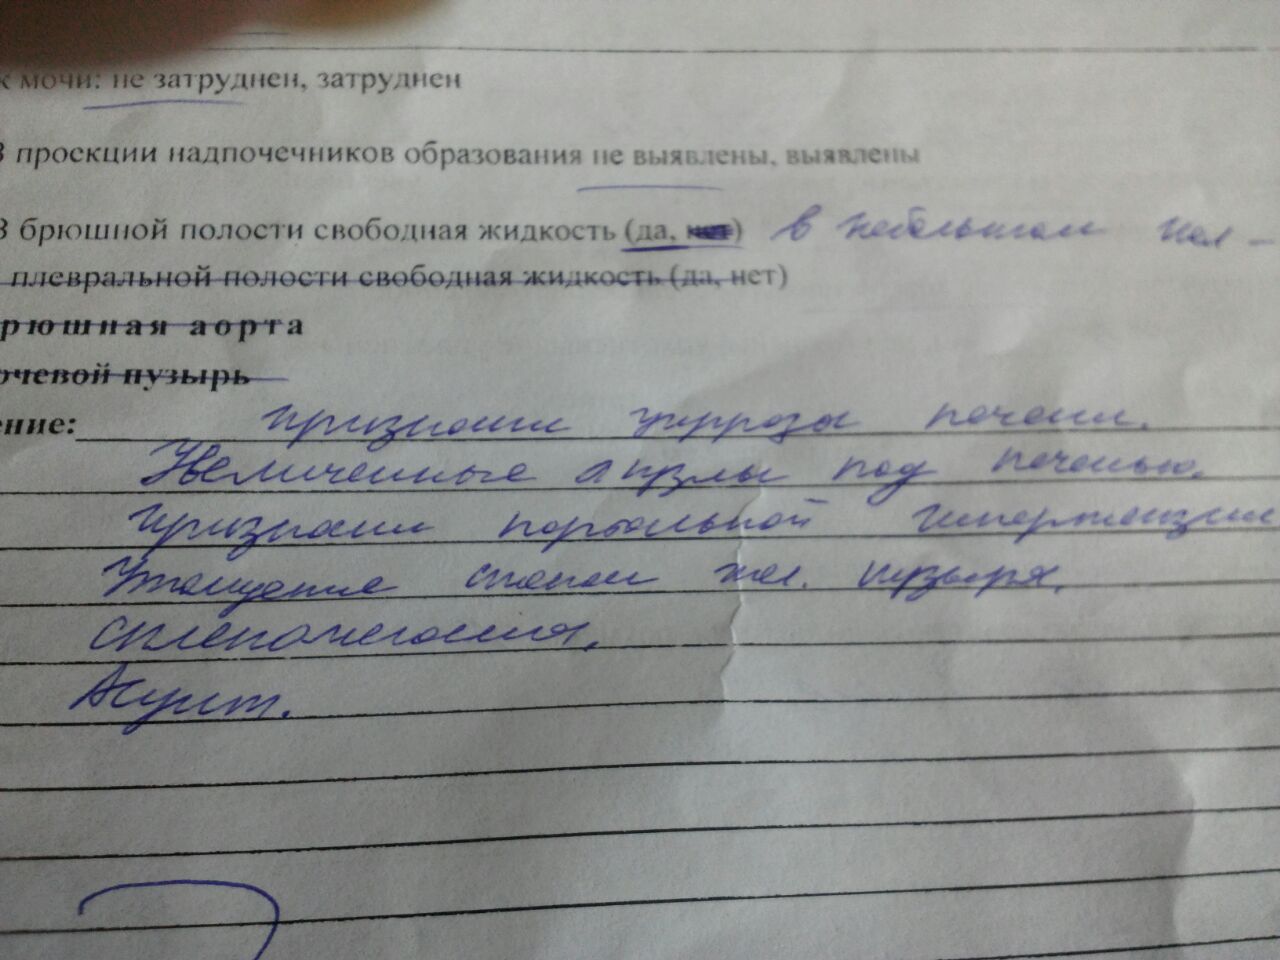 к мочи: не затруднен, затруднен
В проекции надпочечников образования не выявлены, выявлены
В брюшной полости свободная жидкость (да, нет) в небольшом кол-
плевральной полости свободная жидкость (да, нет)
рюшная аорта
очевой пузырь
ение: Признаки цирроза печени.
Увеличенные л/узлы под печенью.
Признаки портальной гипертензии
Утолщение стенки жел. пузыря.
Спленомегалия.
Асцит.